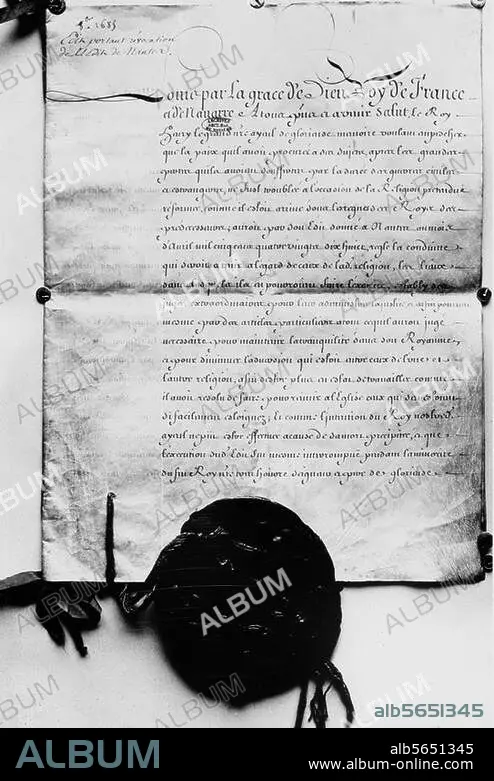 8bre 1685
Edit portant revocation
de l'Edit de Nantes.
Louis par la grace de Dieu Roy de France
et de Navarre A tous presens et a venir Salut, le Roy
Henry le grand nre ayeul de glorieuse memoire voulant empescher
que la paix qu'il avoit procurée a ses sujets, apres les grandes
pertes qu'ils avoient souffertes par la durée des guerres civiles
et estrangeres, ne fust troublée a l'occasion de la Religion pretendue
reformée, comme il estoit arrivé sous les regnes des Roys ses
predecesseurs, auroit par son Edit donné a Nantes au mois
d'Avril mil cinq cens quatre vingts dix huict, reglé la conduitte
qui devoit tenir a l'egard de ceux de lad. religion, les lieux
dans
juges extraordinaires pour leur administrer la justice et enfin pourveu
mesme par des articles particuliers a tout ce qu'il auroit jugé
necessaire pour maintenir la tranquilité dans son Royaume
et pour diminuer l'aversion qui estoit entre ceux de l'une et
l'autre religion, afin d'estre plus en estat de travailler comme
il avoit resolu de faire pour reunir a l'Eglise ceux qui s'en estoient
si facilement esloignez, Et comme l'intention du Roy nostred.
ayeul ne put estre effectuée a cause de sa mort precipitée, et que
l'execution dud. Edit fut mesme interrompue pendant la minorité
du feu Roy nre tres honoré seigneur et pere de glorieuse
ALBUM
alb5651345
ALBUM
alb5651345
www.album-online.com